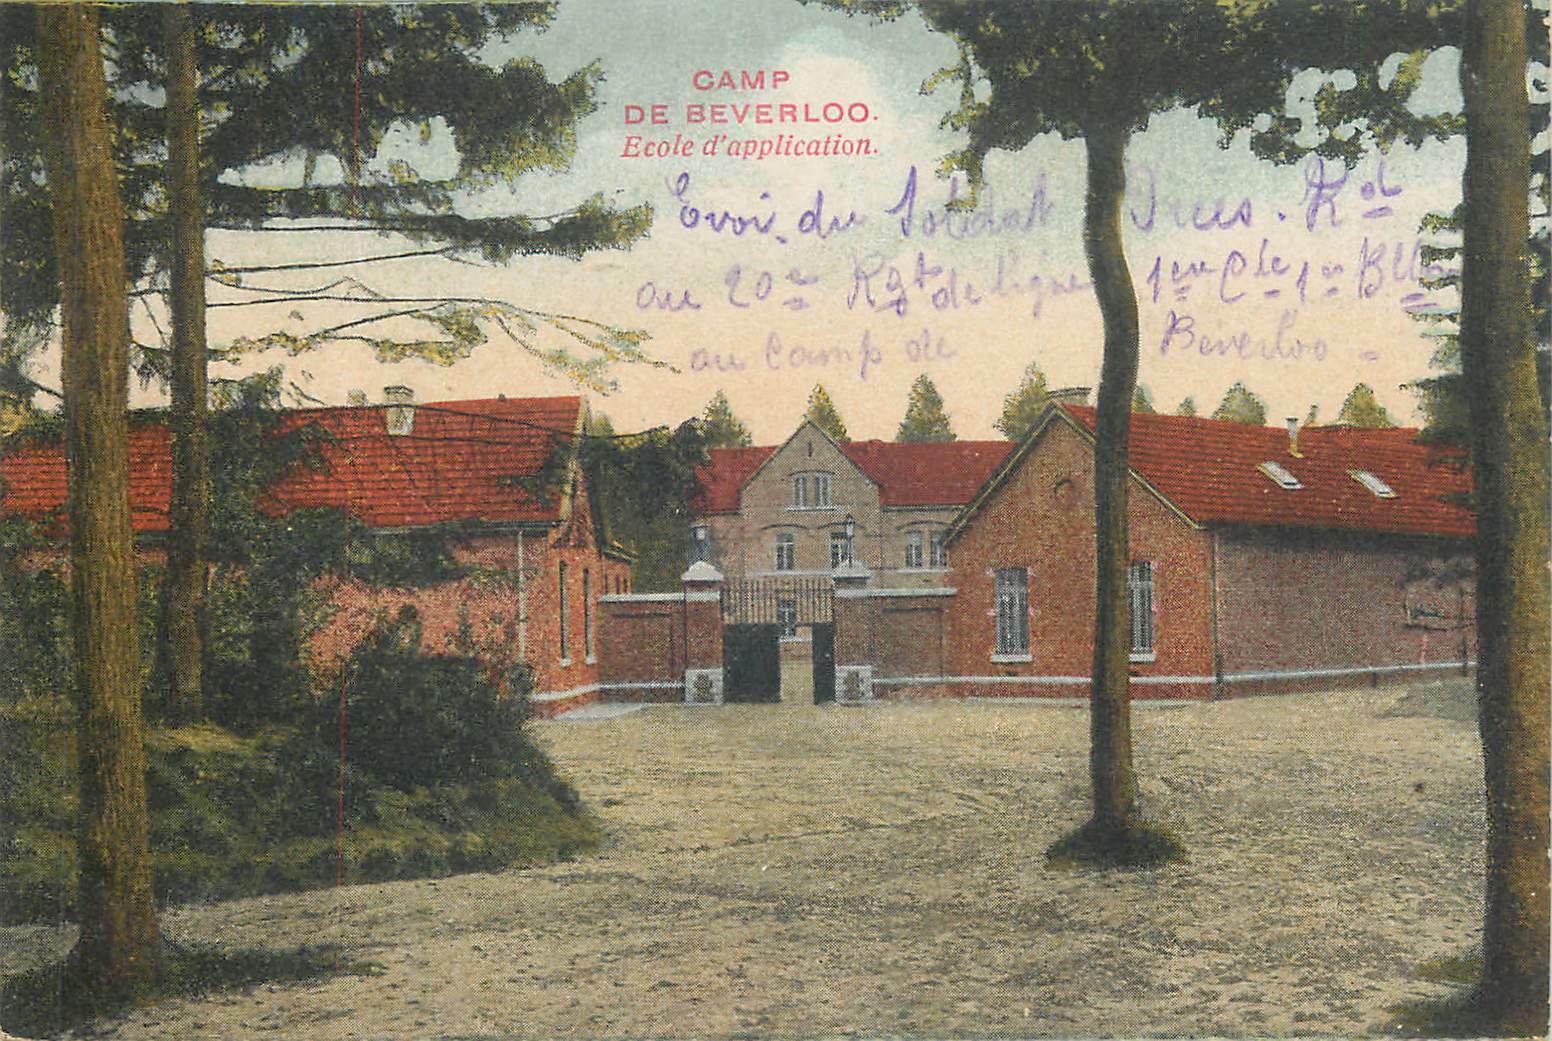 CAMP
DE BEVERLOO.
Ecole d'application.
Evoi. du Soldat
au 20e Rgt de ligne 1ere Cie 1er Bllon
au Camp de Beverloo